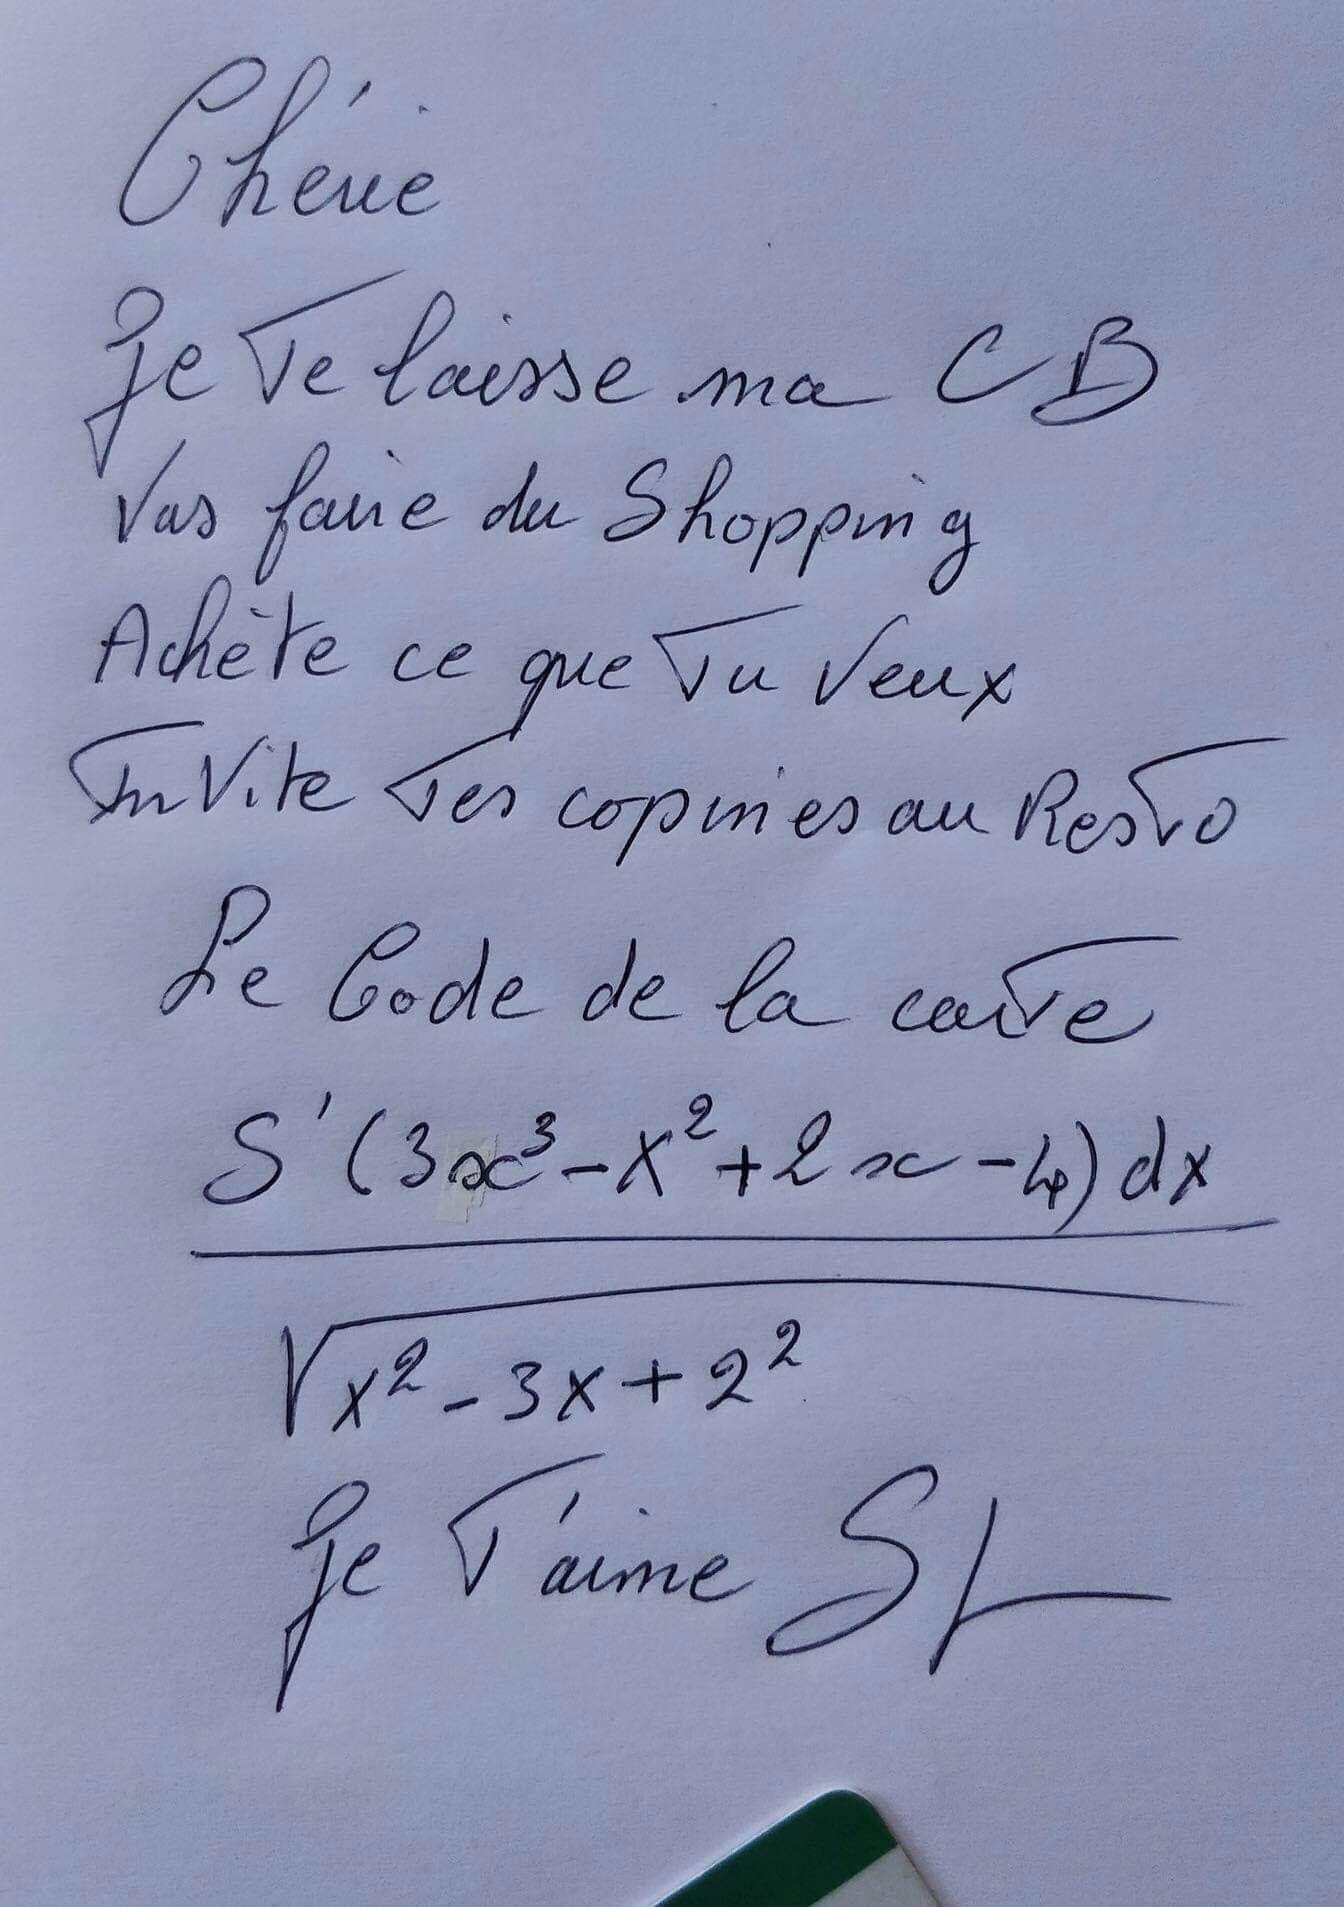 Chérie
Je Te laisse ma CB
Vas faire du Shopping
Achète ce que Tu Veux
InVite Tes copines au Resto
Le Code de la carte
S'(3x³-x²+2x-4)dx
√x²-3x+2²
Je T'aime